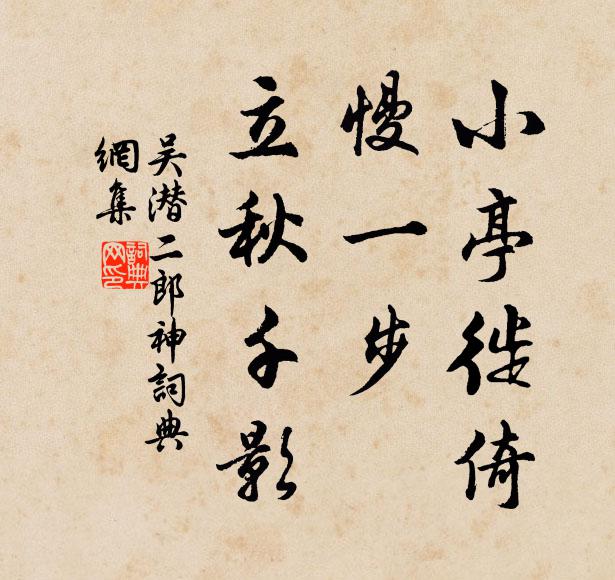 小亭徙倚
慢一步
立秋千影
吴潜二郎神詞典
網集
詞典
网印